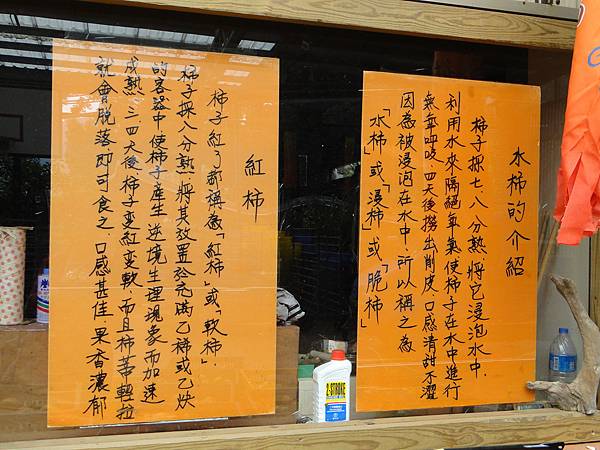 水柿的介紹
柿子採七、八分熟將它浸泡水中,
利用水來隔絕氧氣使柿子在水中進行
無氧呼吸,四天後撈出削皮,口感清甜不澀
因為被浸泡在水中,所以稱之為
「水柿」或「浸柿」或「脆柿」
紅柿
柿子紅了都稱為「紅柿」或「軟柿」.
柿子採八分熟將其放置於充滿乙稀或乙炔
的容器中使柿子產生逆境生理現象而加速
成熟,三四天後柿子變紅變軟,而且柿蒂輕拉
就會脫落即可食之,口感甚佳果香濃郁
2-STROKE